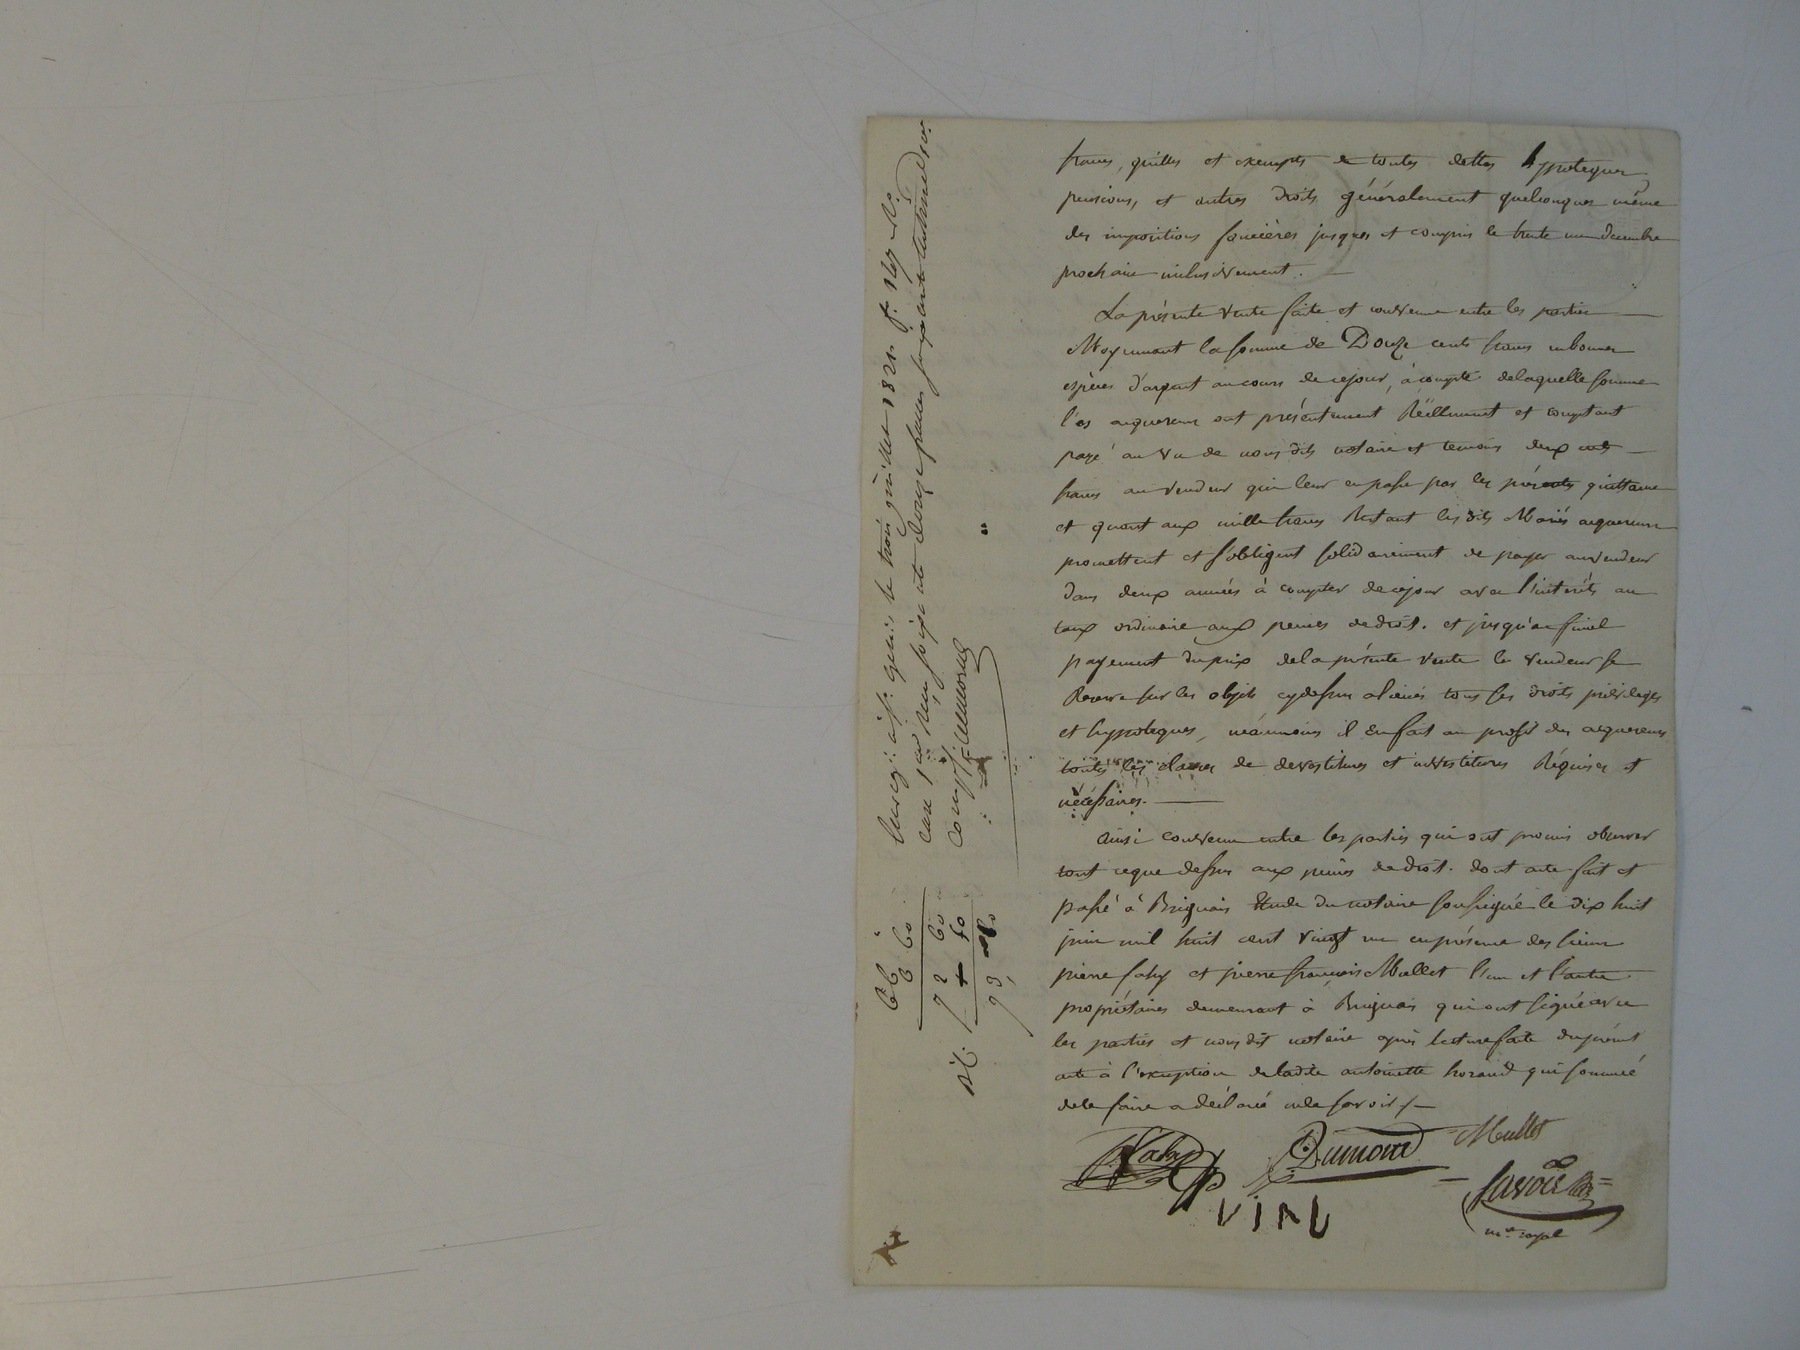 francs, quittes et exempts de toutes dettes hypoteques
pensions, et autres droits généralement quelconques même
des impositions foncières jusques et compris le trente un decembre
prochain inclusivement.
La présente vente faite et convenue entre les parties
Moyennant la somme de Douze cents francs en bonnes
espèces d'argent au cours de ce jour, à compte de laquelle somme
l'es acquereurs ont présentement Réellement et comptant
payé au vu de nous dits notaire et temoins deux cents
francs au vendeur qui leur en passe par les présentes quittance
et quant aux mille francs Restant les dits Mariés acquereurs
promettent et s'obligent solidairement de payer au vendeur
dans deux années à compter de ce jour avec l'intérêts au
taux ordinaire aux peines de droit. et jusqu'au final
payement du prix de la présente vente le vendeur se
Reserve sur les objets cy dessus aliénés tous ses droits privileges
et hypoteques, néanmoins il en fait au profit des acquereurs
toutes les clauses de devestitures et investitures Réquises et
nécéssaires.
Ainsi convenu entre les parties qui ont promis observer
tout ce que dessus aux peines de droit. dont acte fait et
passé à Brignais Etude du notaire soussigné le dix huit
juin mil huit cent vingt un en présence des sieurs
pierre faby et pierre françois Mullet l'un et l'autre
propriétaires demeurant à Brignais qui ont signé avec
les parties et nous dit notaire après lecture faite du présent
acte à l'exception de ladite antoinette qui sommée
de le faire a déclaré ne le savoir /
Dumond Mullet
VIAL
n.re royal
le trois juillet 1821 f.
case 1 Reçu soixante douze francs soixante centimes
66
6 60
72 60
93